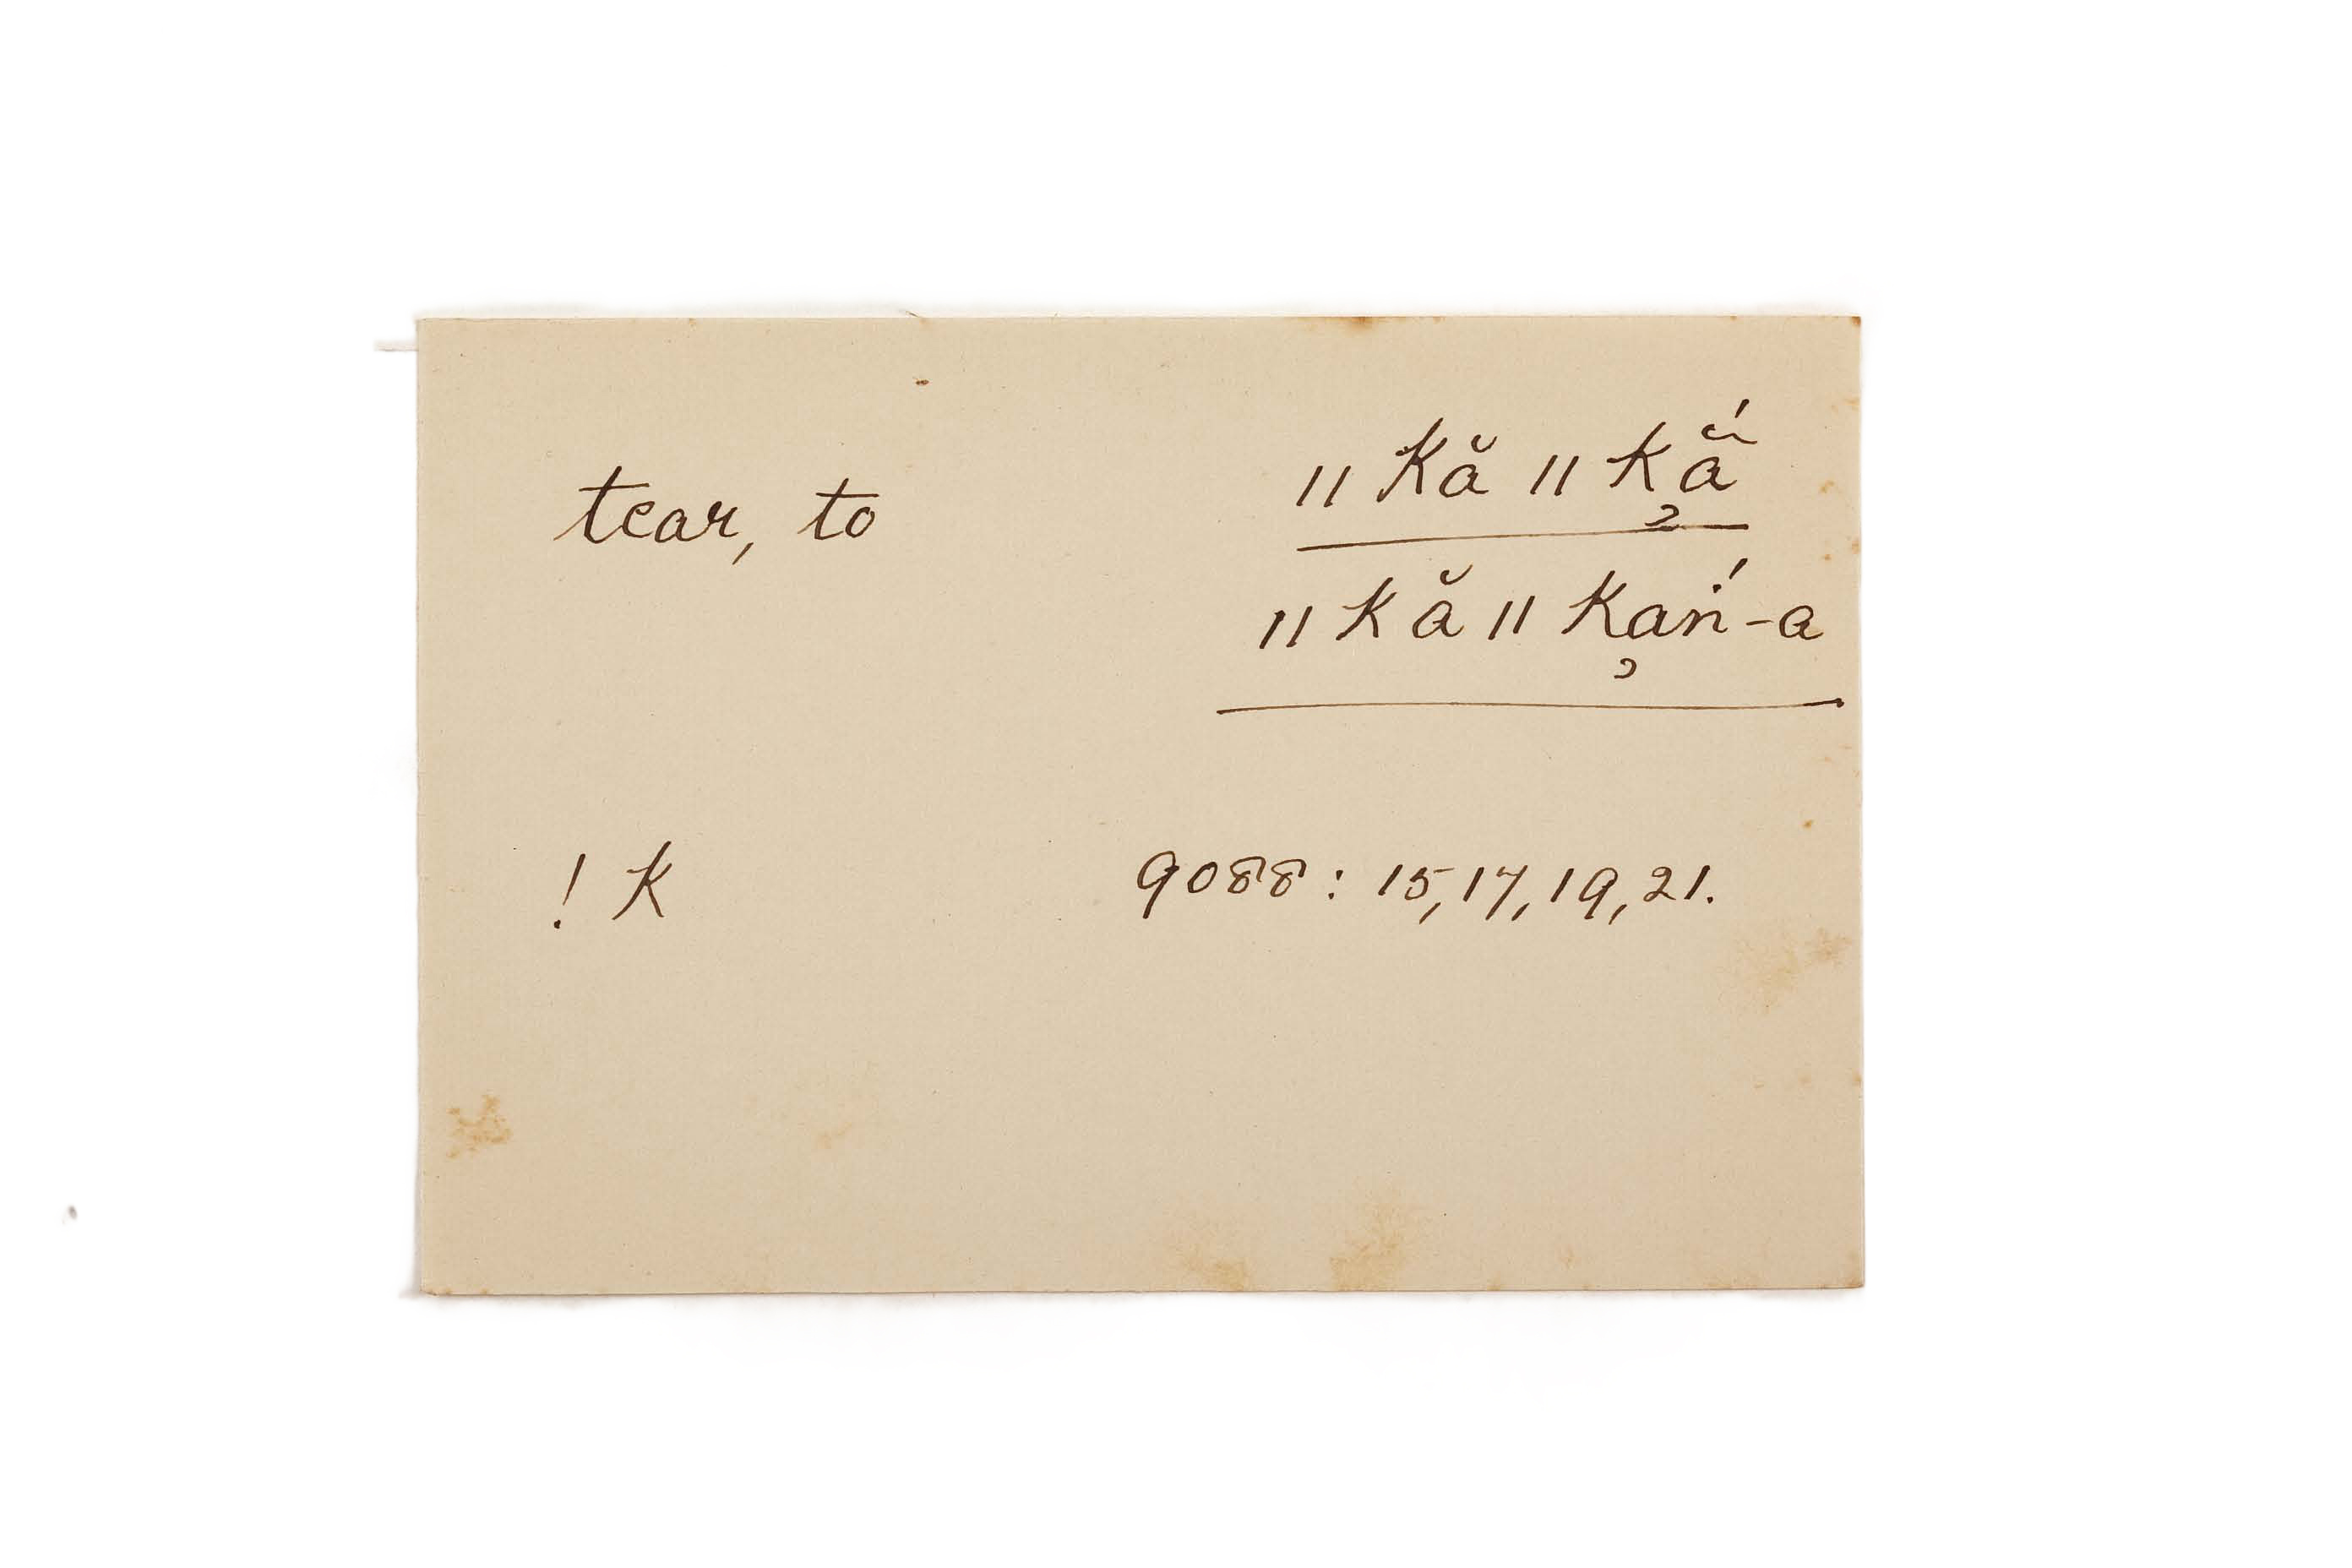 tear, to ǁkă ǁk̡ẵ́
ǁkă ǁk̡aṅ́-a
! K 9088 : 15, 17, 19, 21.